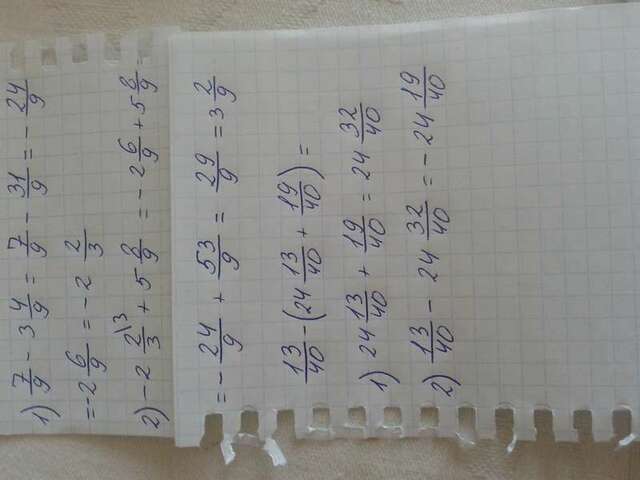 1) 7/9 - 3 4/9 = 7/9 - 31/9 = - 24/9
= -2 6/9 = -2 2/3
2) -2 2\3/3 + 5 8/9 = -2 6/9 + 5 8/9 =
= - 24/9 + 53/9 = 29/9 = 3 2/9
13/40 - (24 13/40 + 19/40) =
1) 24 13/40 + 19/40 = 24 32/40
2) 13/40 - 24 32/40 = -24 19/40